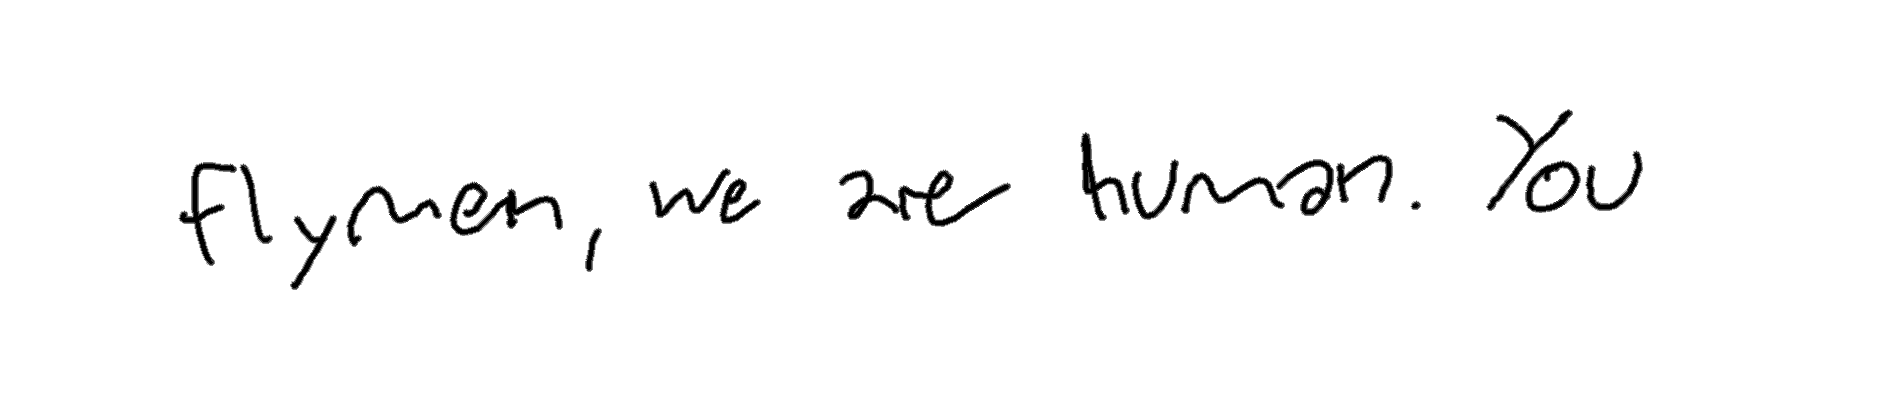 flymen, we are human. You